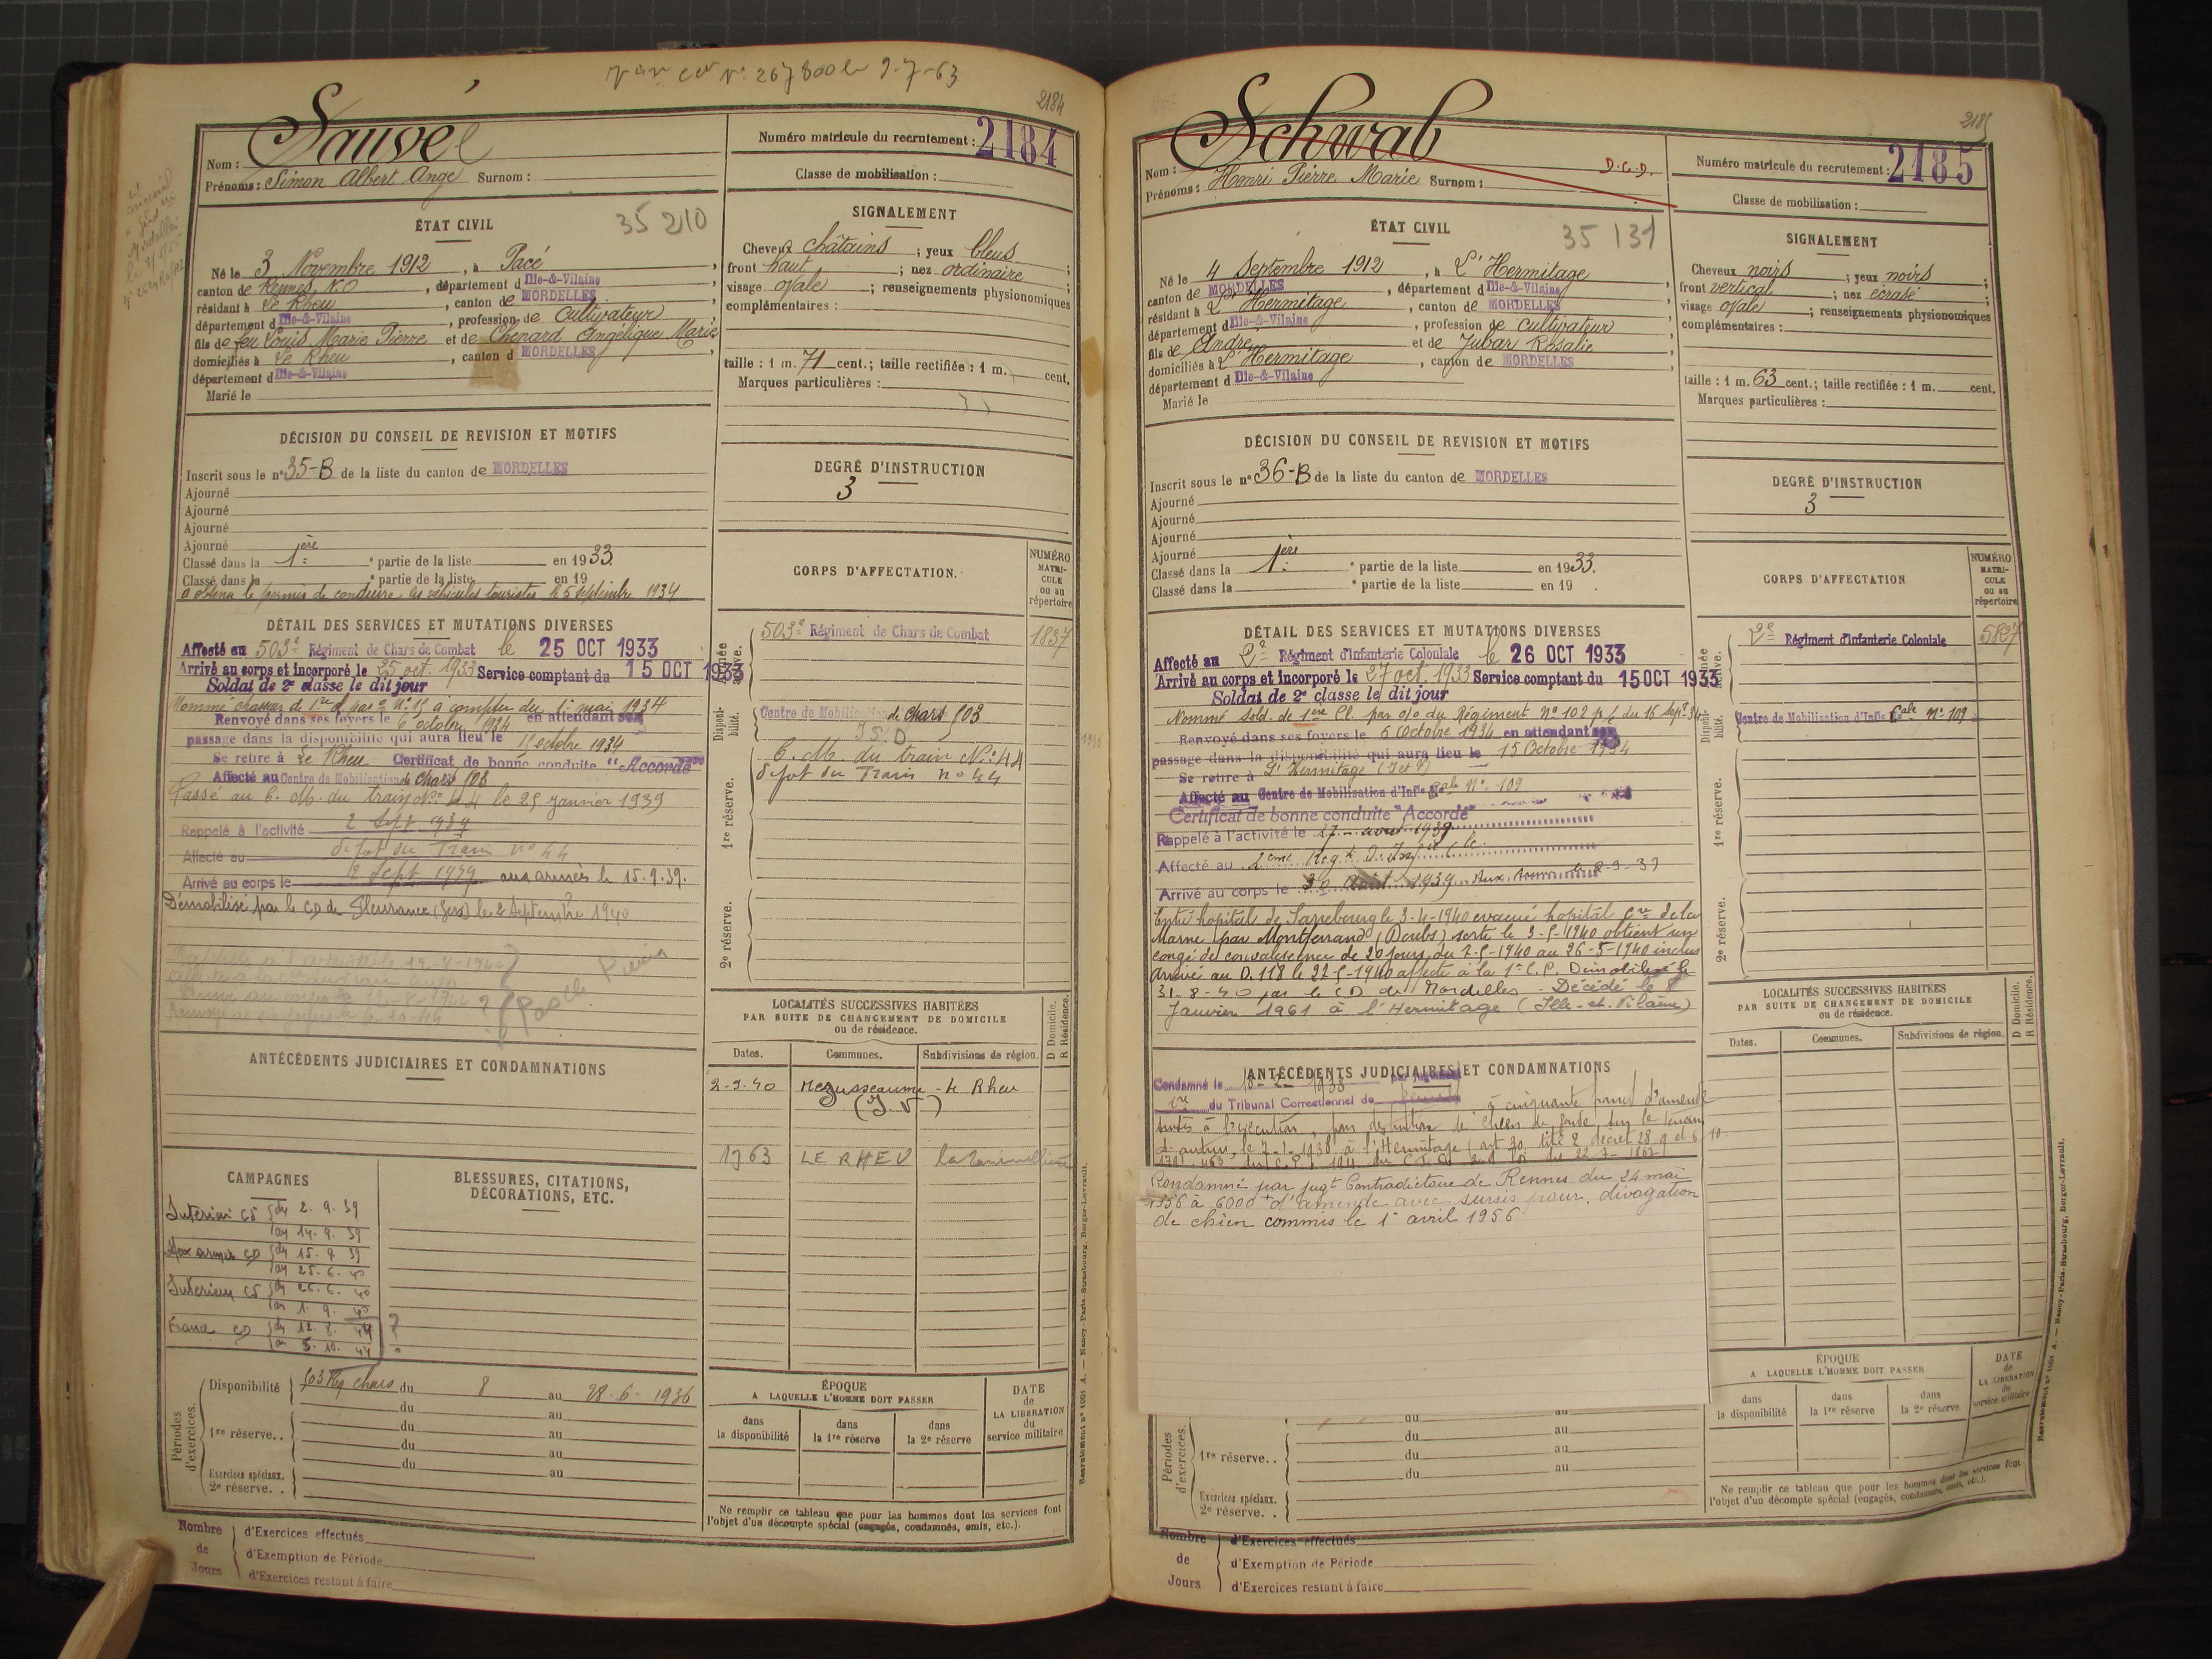 267800 le 9-7-63
2184
Sauvé
Nom :
Prénoms : Simon Albert Ange Surnom :
Numéro matricule du recrutement : 2184
Classe de mobilisation :
ÉTAT CIVIL
35 210
Né le 3 Novembre 1912, à Pacé,
canton de Rennes N.O, département d Ille-&-Vilaine
résidant à Le Rheu, canton de MORDELLES
département d Ille-&-Vilaine, profession de Cultivateur
fils de feu Louis Marie Pierre et de Chenard Angélique Marie
domiciliés à Le Rheu, canton d MORDELLES,
département d Ille-&-Vilaine
Marié le
SIGNALEMENT
Cheveux châtains ; yeux bleus ;
front haut ; nez ordinaire ;
visage ovale ; renseignements physionomiques
complémentaires :
taille : 1 m. 71 cent.; taille rectifiée : 1 m. cent.
Marques particulières :
DÉCISION DU CONSEIL DE REVISION ET MOTIFS
Inscrit sous le n° 35-B de la liste du canton de MORDELLES
Ajourné
Ajourné
Ajourné
Ajourné
Classé dans la 1ère partie de la liste en 1933.
Classé dans la partie de la liste en 19
a obtenu le permis de conduire les véhicules touristes le 5 Septembre 1934
DEGRÉ D'INSTRUCTION
3
DÉTAIL DES SERVICES ET MUTATIONS DIVERSES
Affecté au 503e Régiment de Chars de Combat le 25 OCT 1933
Arrivé au corps et incorporé le 25 oct. 1933 Service comptant du 15 OCT 1933
Soldat de 2e classe le dit jour
Nommé chasseur de 1re cl. par o. n° 15 à compter du 1er mai 1934
Renvoyé dans ses foyers le 6 octobre 1934 en attendant son
passage dans la disponibilité qui aura lieu le 15 octobre 1934
Se retire à Le Rheu Certificat de bonne conduite "Accordé"
Affecté au Centre de Mobilisation de chars 503
Passé au C. M. du train N° 44 le 25 janvier 1939
Rappelé à l'activité 2 Sept 1939
Affecté au dépot du Train n° 44
Arrivé au corps le 2 Sept 1939 aux armées le 15.9.39.
Démobilisé par le CD de Fleurance (Gers) le 2 Septembre 1940
CORPS D'AFFECTATION.
NUMÉRO MATRICULE ou au répertoire
Armée active.
503e Régiment de Chars de Combat 1837
Disponibilité.
Centre de Mobilisation de chars 503
C. M. du train N° 44
dépot du Train n° 44
1re réserve.
2e réserve.
ANTÉCÉDENTS JUDICIAIRES ET CONDAMNATIONS
LOCALITÉS SUCCESSIVES HABITÉES
PAR SUITE DE CHANGEMENT DE DOMICILE
ou de résidence.
Dates. Communes. Subdivisions de région. D Domicile. R Résidence.
2-9-40 - le Rheu
(I V)
1963 LE RHEU
CAMPAGNES
Intérieur CS du 2. 9. 39
au 14. 9. 39
Aux armées CD du 15. 9 39
au 25. 6. 40
Intérieur CS du 26. 6. 40
au 1. 9. 40
France CD du 12. 8. 44
au 5. 10. 44
?
BLESSURES, CITATIONS,
DÉCORATIONS, ETC.
Périodes d'exercices.
Disponibilité 503 Reg chars du 8 au 28-6-1936
du au
1re réserve.. du au
du au
du au
Exercices spéciaux.
2e réserve. .
ÉPOQUE
A LAQUELLE L'HOMME DOIT PASSER
dans la disponibilité
dans la 1re réserve
dans la 2e réserve
DATE de LA LIBÉRATION du service militaire
Ne remplir ce tableau que pour les hommes dont les services font
l'objet d'un décompte spécial (engagés, condamnés, omis, etc.).
Nombre de Jours
d'Exercices effectués
d'Exemption de Période
d'Exercices restant à faire
2185
Schwab
Nom : D.C.D.
Prénoms : Henri Pierre Marie Surnom :
Numéro matricule du recrutement : 2185
Classe de mobilisation :
ÉTAT CIVIL
35 131
Né le 4 Septembre 1912, à L'Hermitage
canton de MORDELLES, département d Ille-&-Vilaine
résidant à L'Hermitage, canton de MORDELLES
département d Ille-&-Vilaine, profession de cultivateur
fils de André et de Jubar Rosalie
domiciliés à L'Hermitage, canton de MORDELLES
département d Ille-&-Vilaine
Marié le
SIGNALEMENT
Cheveux noirs ; yeux noirs ;
front vertical ; nez écrasé ;
visage ovale ; renseignements physionomiques
complémentaires :
taille : 1 m. 63 cent.; taille rectifiée : 1 m. cent.
Marques particulières :
DÉCISION DU CONSEIL DE REVISION ET MOTIFS
Inscrit sous le n° 36-B de la liste du canton de MORDELLES
Ajourné
Ajourné
Ajourné
Ajourné
Classé dans la 1ère partie de la liste en 1933.
Classé dans la partie de la liste en 19 .
DEGRÉ D'INSTRUCTION
3
DÉTAIL DES SERVICES ET MUTATIONS DIVERSES
Affecté au 2e Régiment d'Infanterie Coloniale le 26 OCT 1933
Arrivé au corps et incorporé le 27 oct. 1933 Service comptant du 15 OCT 1933
Soldat de 2e classe le dit jour
Nommé Sold. de 1ère Cl. par o/o du Régiment N° 102 p/c du 16 Sept. 34
Renvoyé dans ses foyers le 6 Octobre 1934 en attendant son
passage dans la disponibilité qui aura lieu le 15 Octobre 1934
Se retire à L'Hermitage (I et V)
Affecté au Centre de Mobilisation d'Infie Cale N° 109
Certificat de bonne conduite "Accordé"
Rappelé à l'activité le 27 - aout 1939
Affecté au 2eme Regt d'Infie Cle
Arrivé au corps le 30 Août 1939. Aux Armées le 8-9-39
Entré hopital de Sarrebourg le 3-4-1940 evacué hopital Cre de la
Marne par Montferrand (Doubs) sorti le 3-5-1940 obtient un
congé de convalescence de 20 jours du 7-5-1940 au 26-5-1940 inclus
Arrivé au D. 118 le 27-5-1940 affecté à la 1e C.P. Démobilisé le
31-8-40 par le CD de Mordelles - Décédé le 8
Janvier 1961 à l'Hermitage (Ille-et-Vilaine)
CORPS D'AFFECTATION
NUMÉRO MATRICULE ou au répertoire
Armée active.
2e Régiment d'Infanterie Coloniale 5827
Disponibilité.
Centre de Mobilisation d'Infie Cale N° 109
1re réserve.
2e réserve.
ANTÉCÉDENTS JUDICIAIRES ET CONDAMNATIONS
Condamné le 10-2-1938 par Jugement
du Tribunal Correctionnel de Rennes à cinquante francs d'amende
sursis à l'exécution, pour
d'autrui le 7-1-1938 à l'Hermitage
Condamné par jugt Contradictoire de Rennes du 24 mai
1956 à 6000f d'amende avec sursis pour, divagation
de chien commis le 1er avril 1956
LOCALITÉS SUCCESSIVES HABITÉES
PAR SUITE DE CHANGEMENT DE DOMICILE
ou de résidence.
Dates. Communes. Subdivisions de région. D Domicile. R Résidence.
Périodes d'exercices.
du au
1re réserve.. du au
du au
du au
Exercices spéciaux.
2e réserve. .
ÉPOQUE
A LAQUELLE L'HOMME DOIT PASSER
dans la disponibilité
dans la 1re réserve
dans la 2e réserve
DATE de LA LIBÉRATION du service militaire
Ne remplir ce tableau que pour les hommes dont les services font
l'objet d'un décompte spécial (engagés, condamnés, omis, etc.).
Nombre de Jours
d'Exercices effectués
d'Exemption de Période
d'Exercices restant à faire